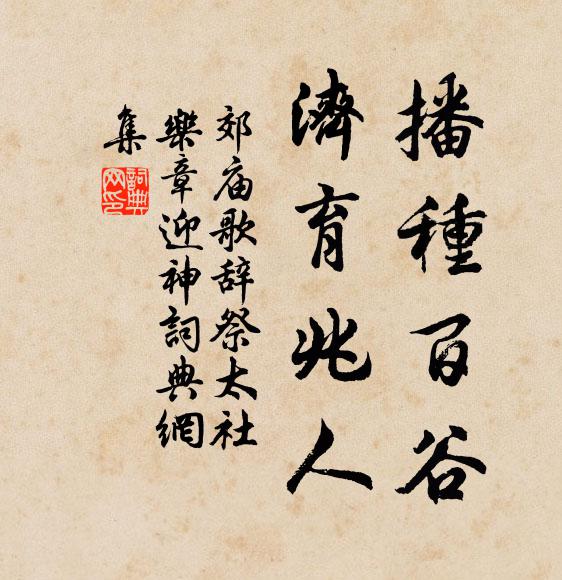 播種百谷
濟育兆人
郊庙歌辞祭太社
樂章迎神詞典網
集
詞典
网印